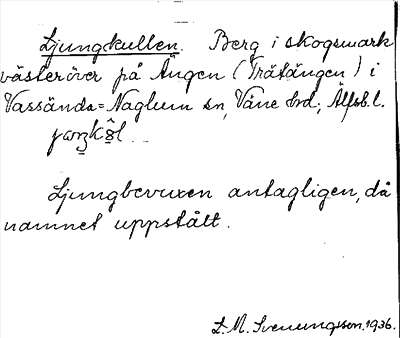 Ljungkullen. Berg i skogsmark
västeröver på Ängen (Trätängen) i
Vassända-Naglum sn, Väne hd; Älfsb. l.
Ljungbevuxen antagligen, då
namnet uppstått.
L. M. Svenungsson. 1936.